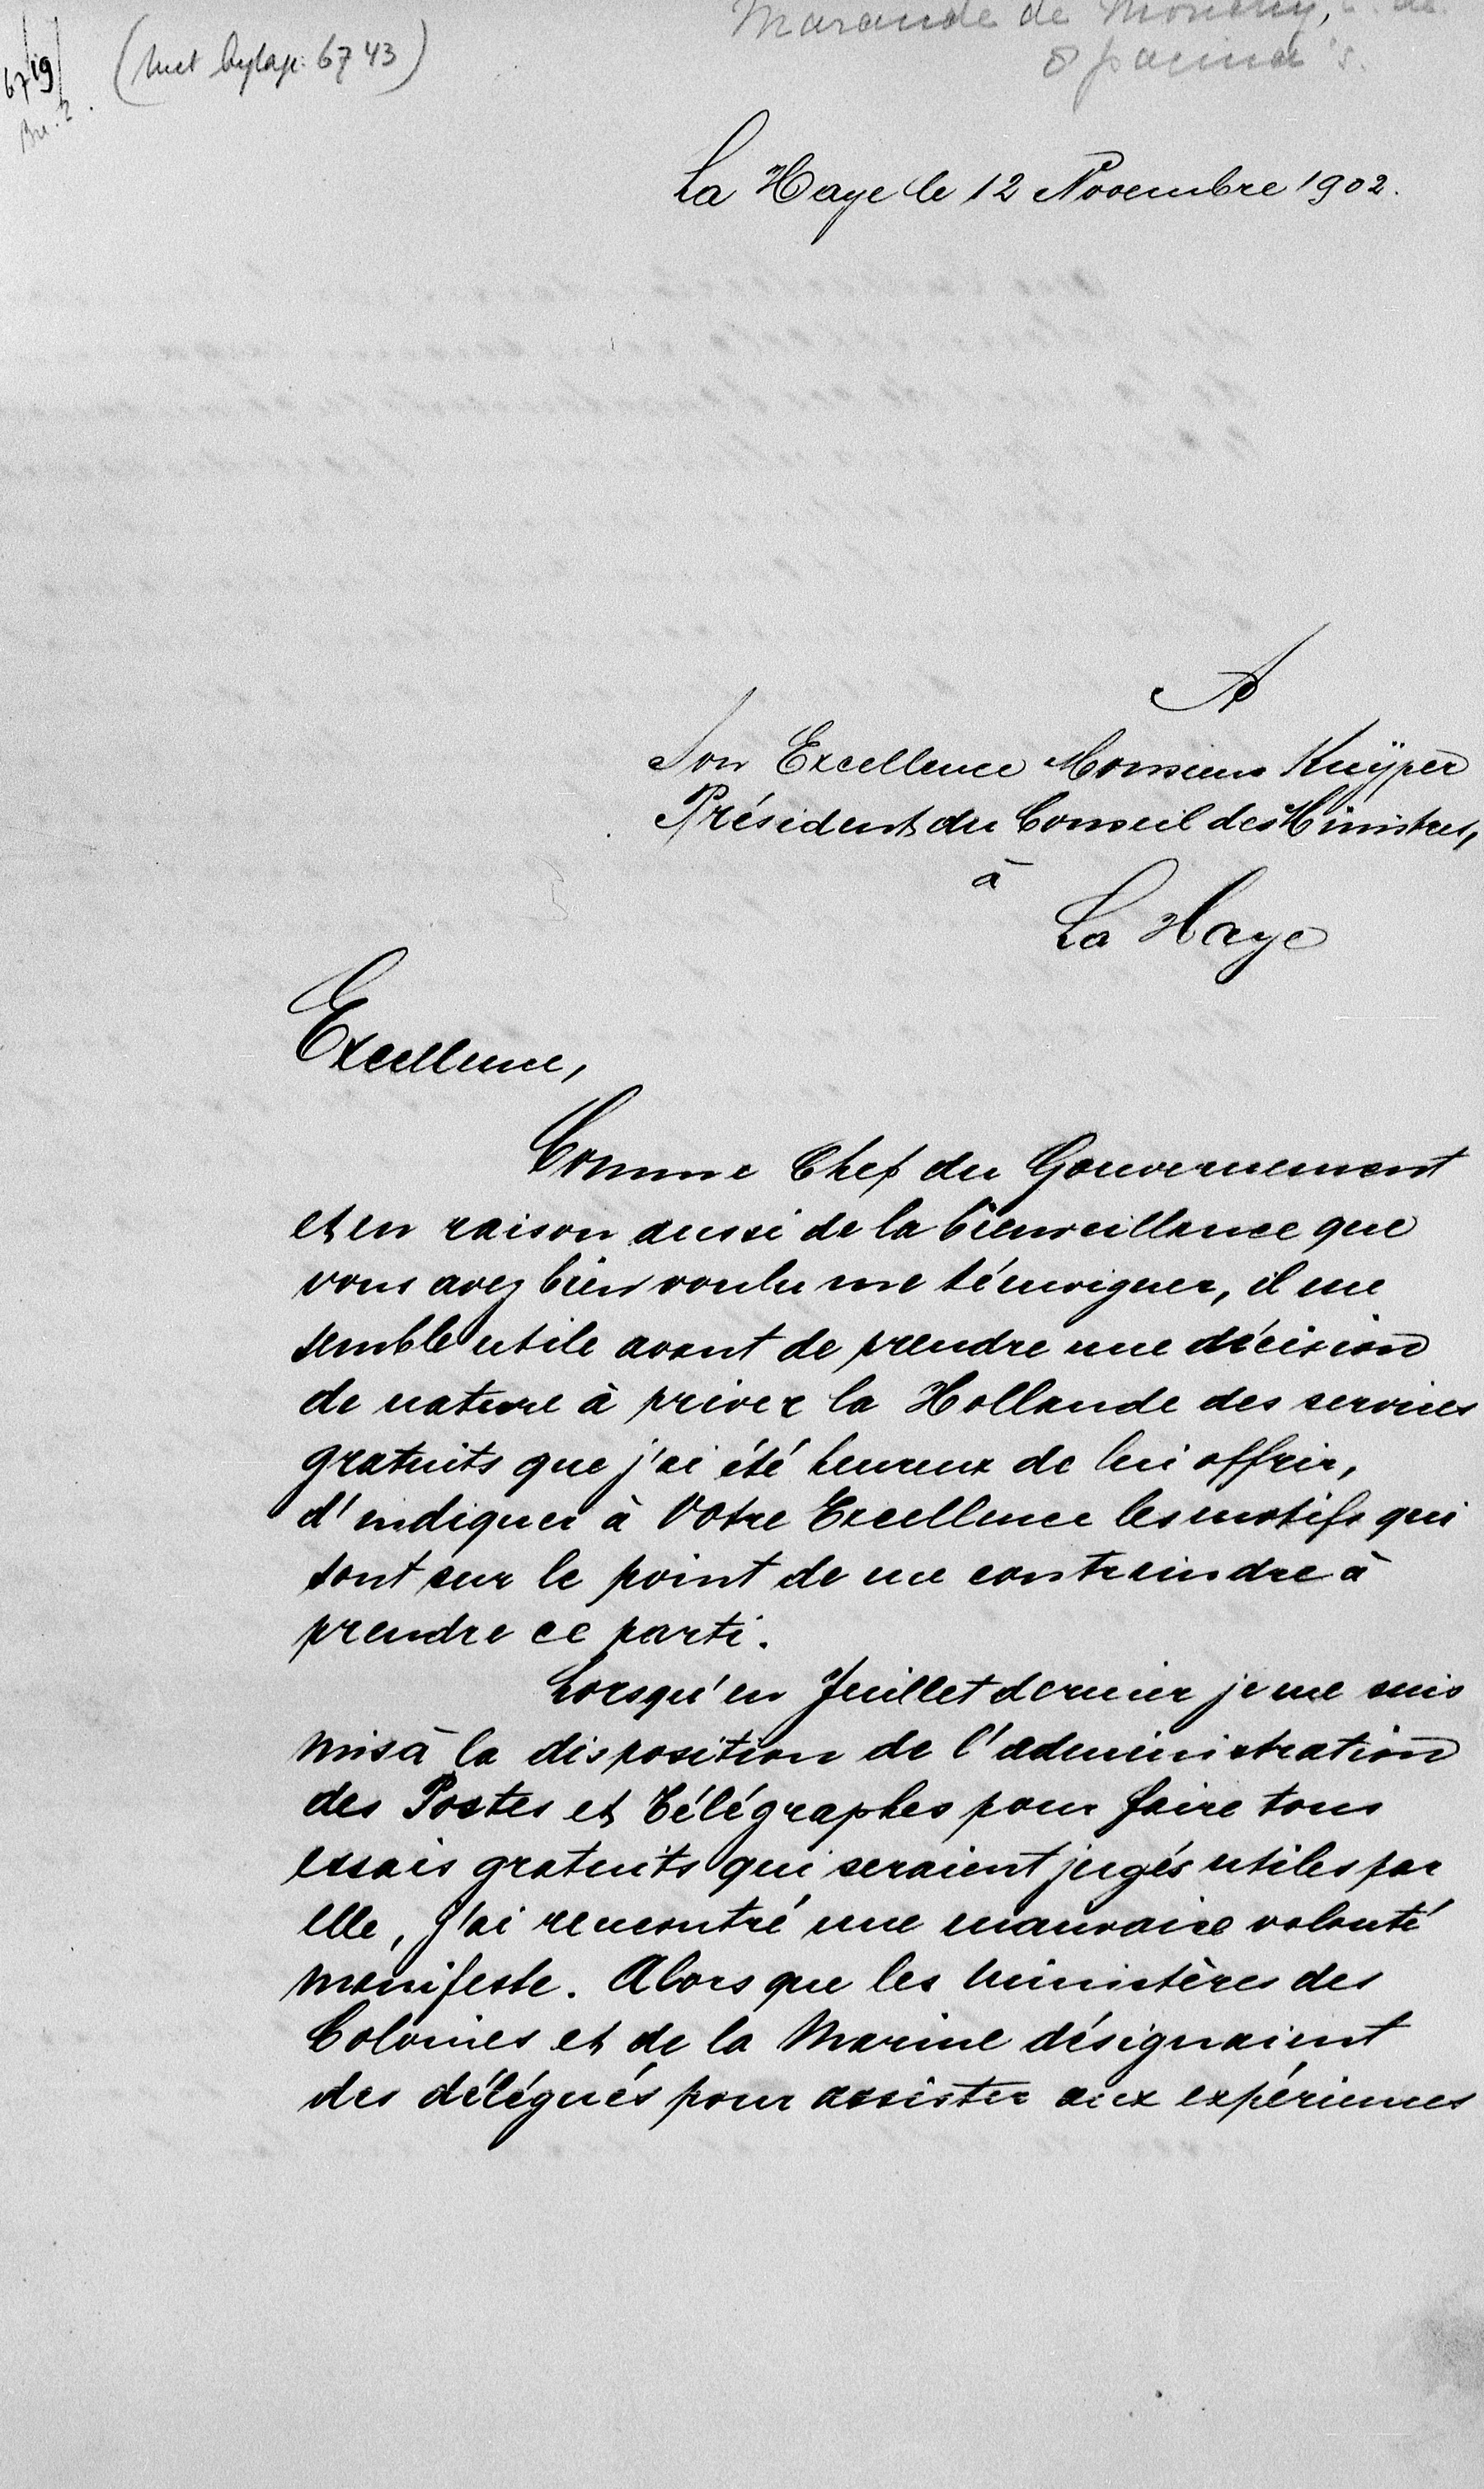 Marande de Monchy,
8 pagina's.
6719
(met bylage: 6743)
La Haye le 12 Novembre 1902.
A
Son Excellence Monsieur Kuÿper
Président du Conseil des Ministres,
à
La Haye
Excellence,
Comme Chef du Gouvernement
et en raison aussi de la bienveillance que
vous avez bien voulu me témoigner, il me
semble utile avant de prendre une décision
de nature à priver la Hollande des services
gratuits que j'ai été heureux de lui offrir,
d'indiquer à Votre Excellence les motifs qui
sont sur le point de me contraindre à
prendre ce parti.
Lorsqu'en Juillet dernier je me suis
mis à la disposition de l'administration
des Postes et Télégraphes pour faire tous
essais gratuits qui seraient jugés utiles par
elle, j'ai rencontré une mauvaise volonté
manifeste. Alors que les ministères des
Colonies et de la Marine désignaient
des délégués pour assister aux expériences